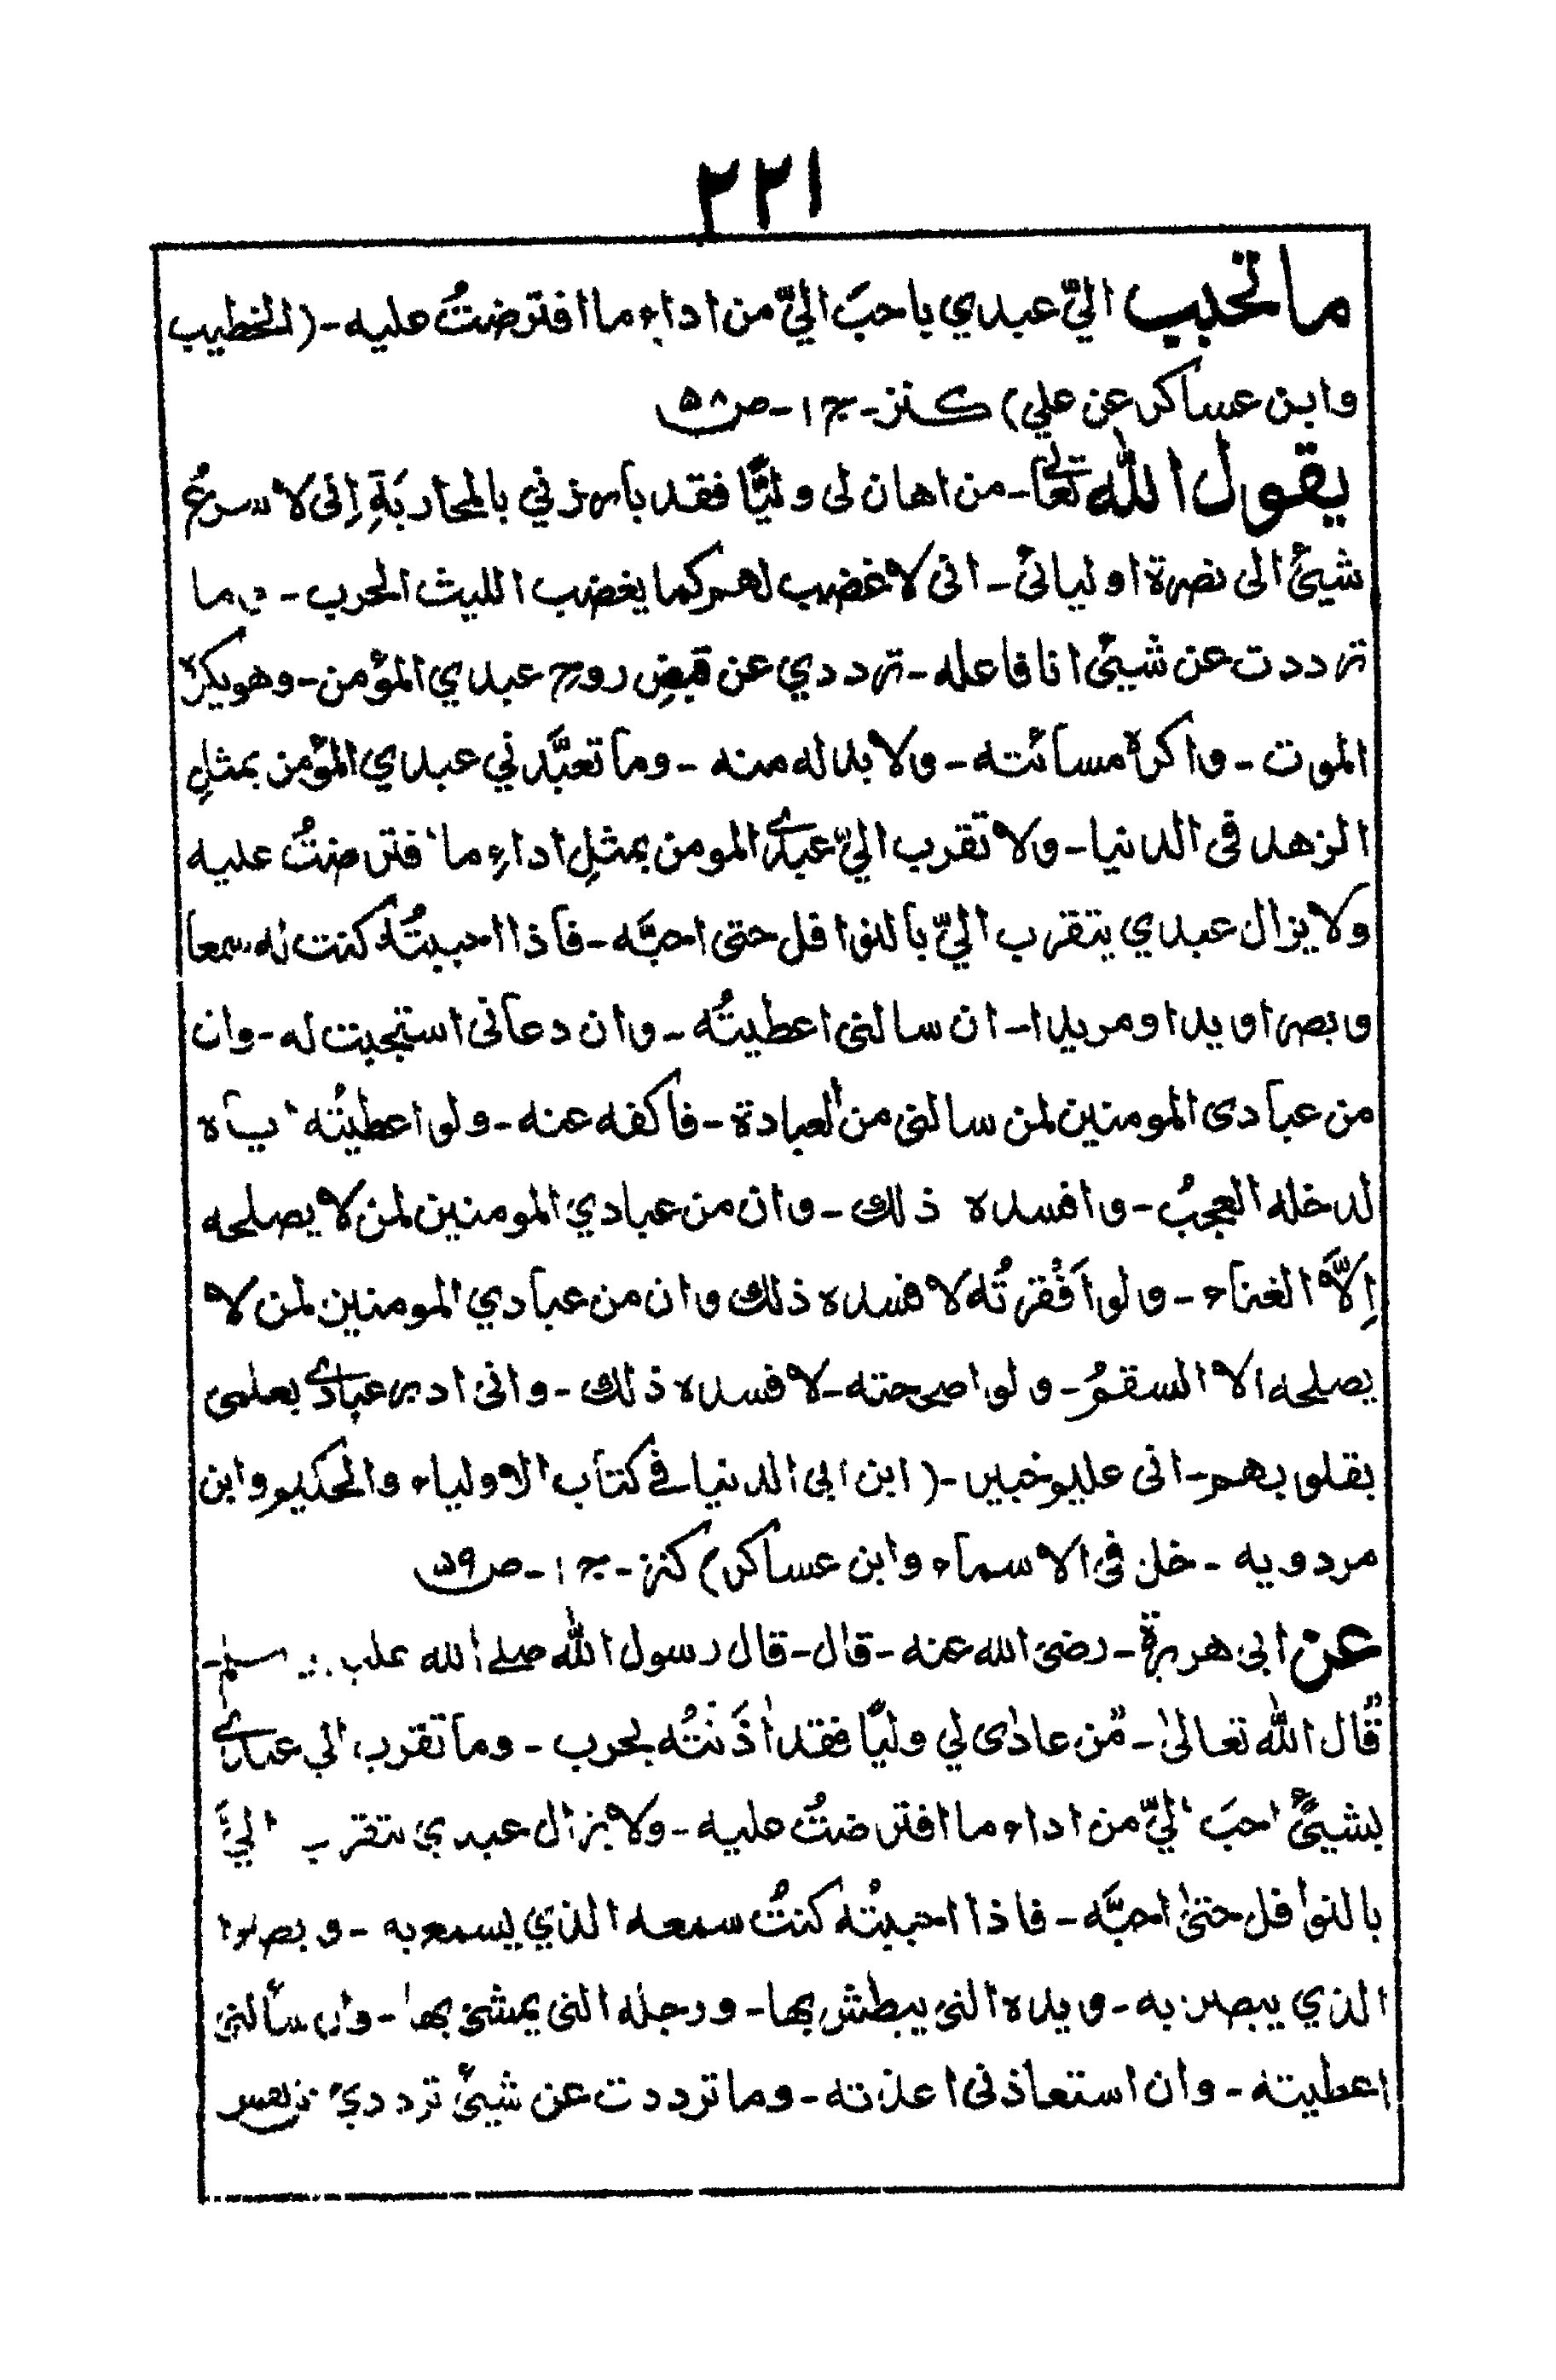 ٢٢١
ما تحبب اليّ عبدي باحبَ اليّ من اداء ما افترضتُ عليه - (الخطيب
وابن عساكر عن علي) كنز - ج ١ - ص ٥٨
يقول الله تعالى - من اهان لى وليًّا فقد بارزني بالمحاربَةِ اِنى لاسرعُ
شيئ الى نصرة اوليائى - انى لاغضب لهم كما يغضب الليث الحرب - وما
ترددت عن شيئ انا فاعله - ترددي عن قبضِ روح عبدي المؤمن - وهو يكره
الموت - واكره مسائته - ولا بد له منه - وما تعبَّدني عبدي المؤمن بمثلِ
الزهد فى الدنيا - ولا تقرب اليّ عبدى المومن بمثلِ اداءِ ما افترضتُ عليه
ولا يزال عبدي يتقرب اليّ بالنوافل حتى احبَّه - فاذا احببتُه كنت له سمعا
وبصرا ويدا ومريدا - ان سالنى اعطيتُه - وان دعانى استجبت له - وان
من عبادى المومنين لمن سالنى من العبادة - فاكفه عنه - ولو اعطيتُه اياه
لدخله العجبُ - وافسده ذلك - وان من عبادي المومنين لمن لا يصلحه
اِلاَّ الغناء - ولو اَفْقرتُه لافسده ذلك وان من عبادي المومنين لمن لا
يصلحه الا السقمُ - ولو اصححته - لافسده ذلك - وانى ادبر عبادى بعلمى
بقلوبهم - انى عليم خبير - (ابن ابى الدنيا في كتاب الاولياء والحكيم وابن
مردويه - حل فى الاسماء وابن عساكر) كنز - ج ١ - ص ٥٩
عن ابى هريرة - رضى الله عنه - قال - قال رسول الله صلے الله عليه وسلم -
قال الله تعالىٰ - من عادٰى لي وليًا فقد اٰذَنْتُه بحرب - وما تقرب الي عبدى
بشيئ احبَ اليّ من اداء ما افترضتُ عليه - ولا يزال عبدي يتقرب اليَّ
بالنوافل حتىٰ احبَّه - فاذا احببتُه كنتُ سمعه الذي يسمع به - وبصره
الذي يبصر به - ويده التى يبطش بها - ورجله التى يمشى بها - وان سألنى
اعطيته - وان استعاذنى اعذته - وما ترددت عن شيئ ترددي نفس